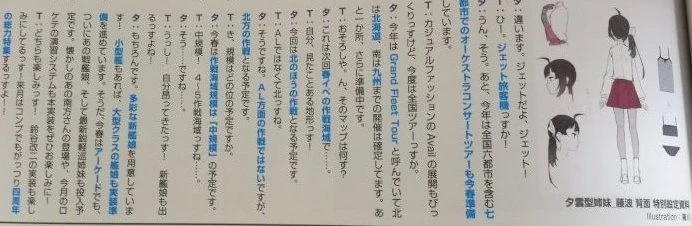 タ：違います。ジェットだよ、ジェット！
T：ひー。ジェット旅客機っすか！
タ：うん、そう。あと、今年は全国六都市を含む七
都市でのオーケストラコンサートツアーも今春準備
しています。
T：カジュアルファッションのAvailの展開もびっ
くりっすけど、今度は全国ツアーっすか。
タ：今年はGrand Fleet Tourと呼んでいて北
は北海道、南は九州までの開催は確定してます。あ
と一か所、さらに準備中です。
T：おそろしや。ん、そのマップは何す？
タ：これは次回春イベの作戦海域で……。
T：自分、見たことある地形っす！
タ：今回は北のほうの作戦となる予定です。
T：ALではなくて北っすね。
タ：そうですね。AL方面の作戦ではないですが、
北方の作戦となる予定です。
T：き、規模はどの位の予定ですか。
タ：今春は作戦海域規模は「中規模」の予定です。
T：中規模！　4～5作戦海域っすね……。
タ：そう！ですね……。
T：うっし！　自分勝ってきたっす！　新艦娘も出
るっすよね！
タ：もちろんです。多彩な新艦娘を用意していま
す！小型艦もあれば、大型クラスの艦娘も実装準
備を進めています。そうだ、今春はアーケードでも、
ついにあの戦艦娘、そして最新鋭軽巡姉妹も投入予
定です。懐かしのあの南方さんの登場や、今月のロ
ケテの演習システムも本実装をぜひお楽しみに！
T：どちらも楽しみっす！　鈴谷改二の実装も楽し
みにしてるっす！来月はコンプでもがっつり四周年
の総力特集するっすよー！
夕雲型姉妹_藤波 背面 特別設定資料
Illustration：